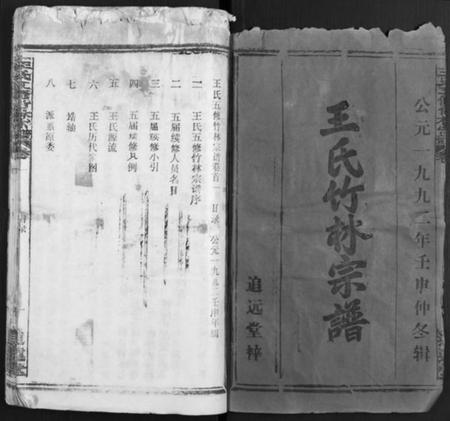 公元一九九二年壬申仲冬辑
王氏竹林宗譜
追远堂梓
王氏五修竹林宗谱卷首 目录 公元一九九二壬申年编
一 王氏五修竹林宗谱序
二 五届续修人员名目
三 五届续修小引
四 五届续修凡例
五 王氏源流
六 王氏历代
七
八 派系源委
追远堂